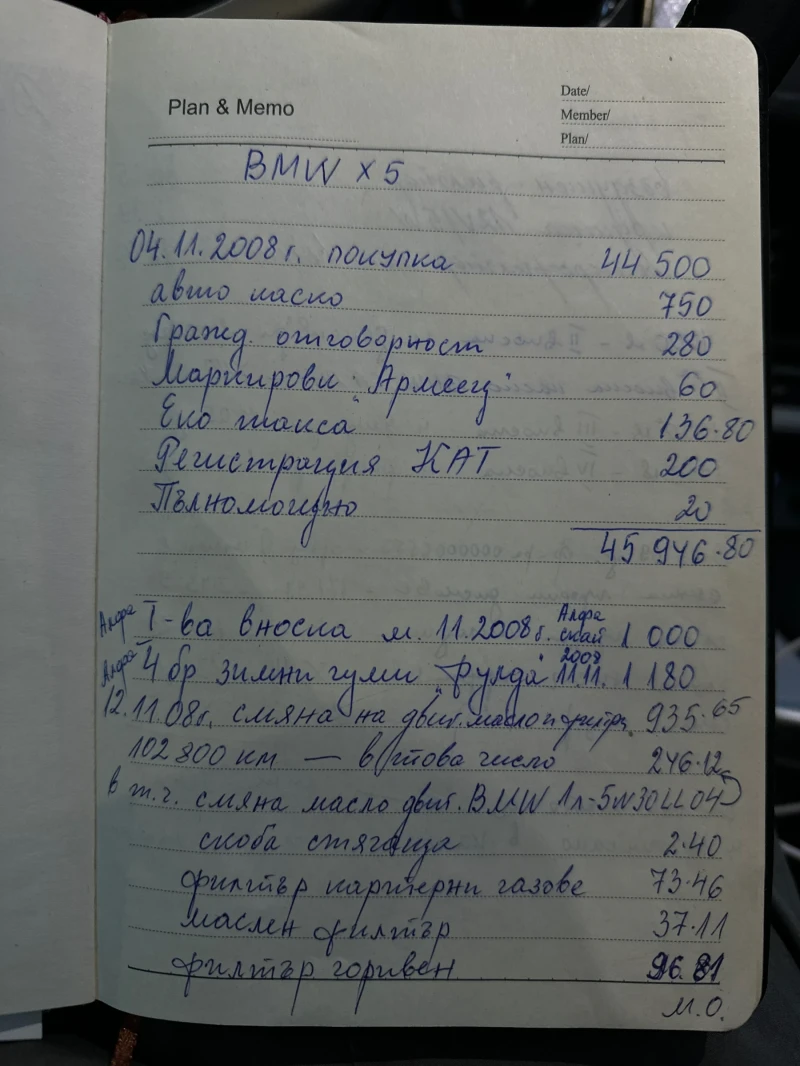 Plan & Memo
Date/
Member/
Plan/
BMW X5
04.11.2008 г. покупка 44 500
авто каско 750
Гражд. отговорност 280
Маркировки "Армеец" 60
Еко такса 136.80
Регистрация КАТ 200
Пълномощно 20
45 946.80
Алфа I-ва вноска м. 11.2008г. Алфа скай 1 000
Алфа 4 бр зимни гуми "Фулда" 2008 11.11. 1 180
12.11.08г. смяна на двиг. масло и филтри 935.65
102 800 км — в това число 246.12
в т.ч. смяна масло двиг. BMW 1л-5W30LL04
скоба стягаща 2.40
филтър картерни газове 73.46
маслен филтър 37.11
филтър горивен 96.81
М.О.